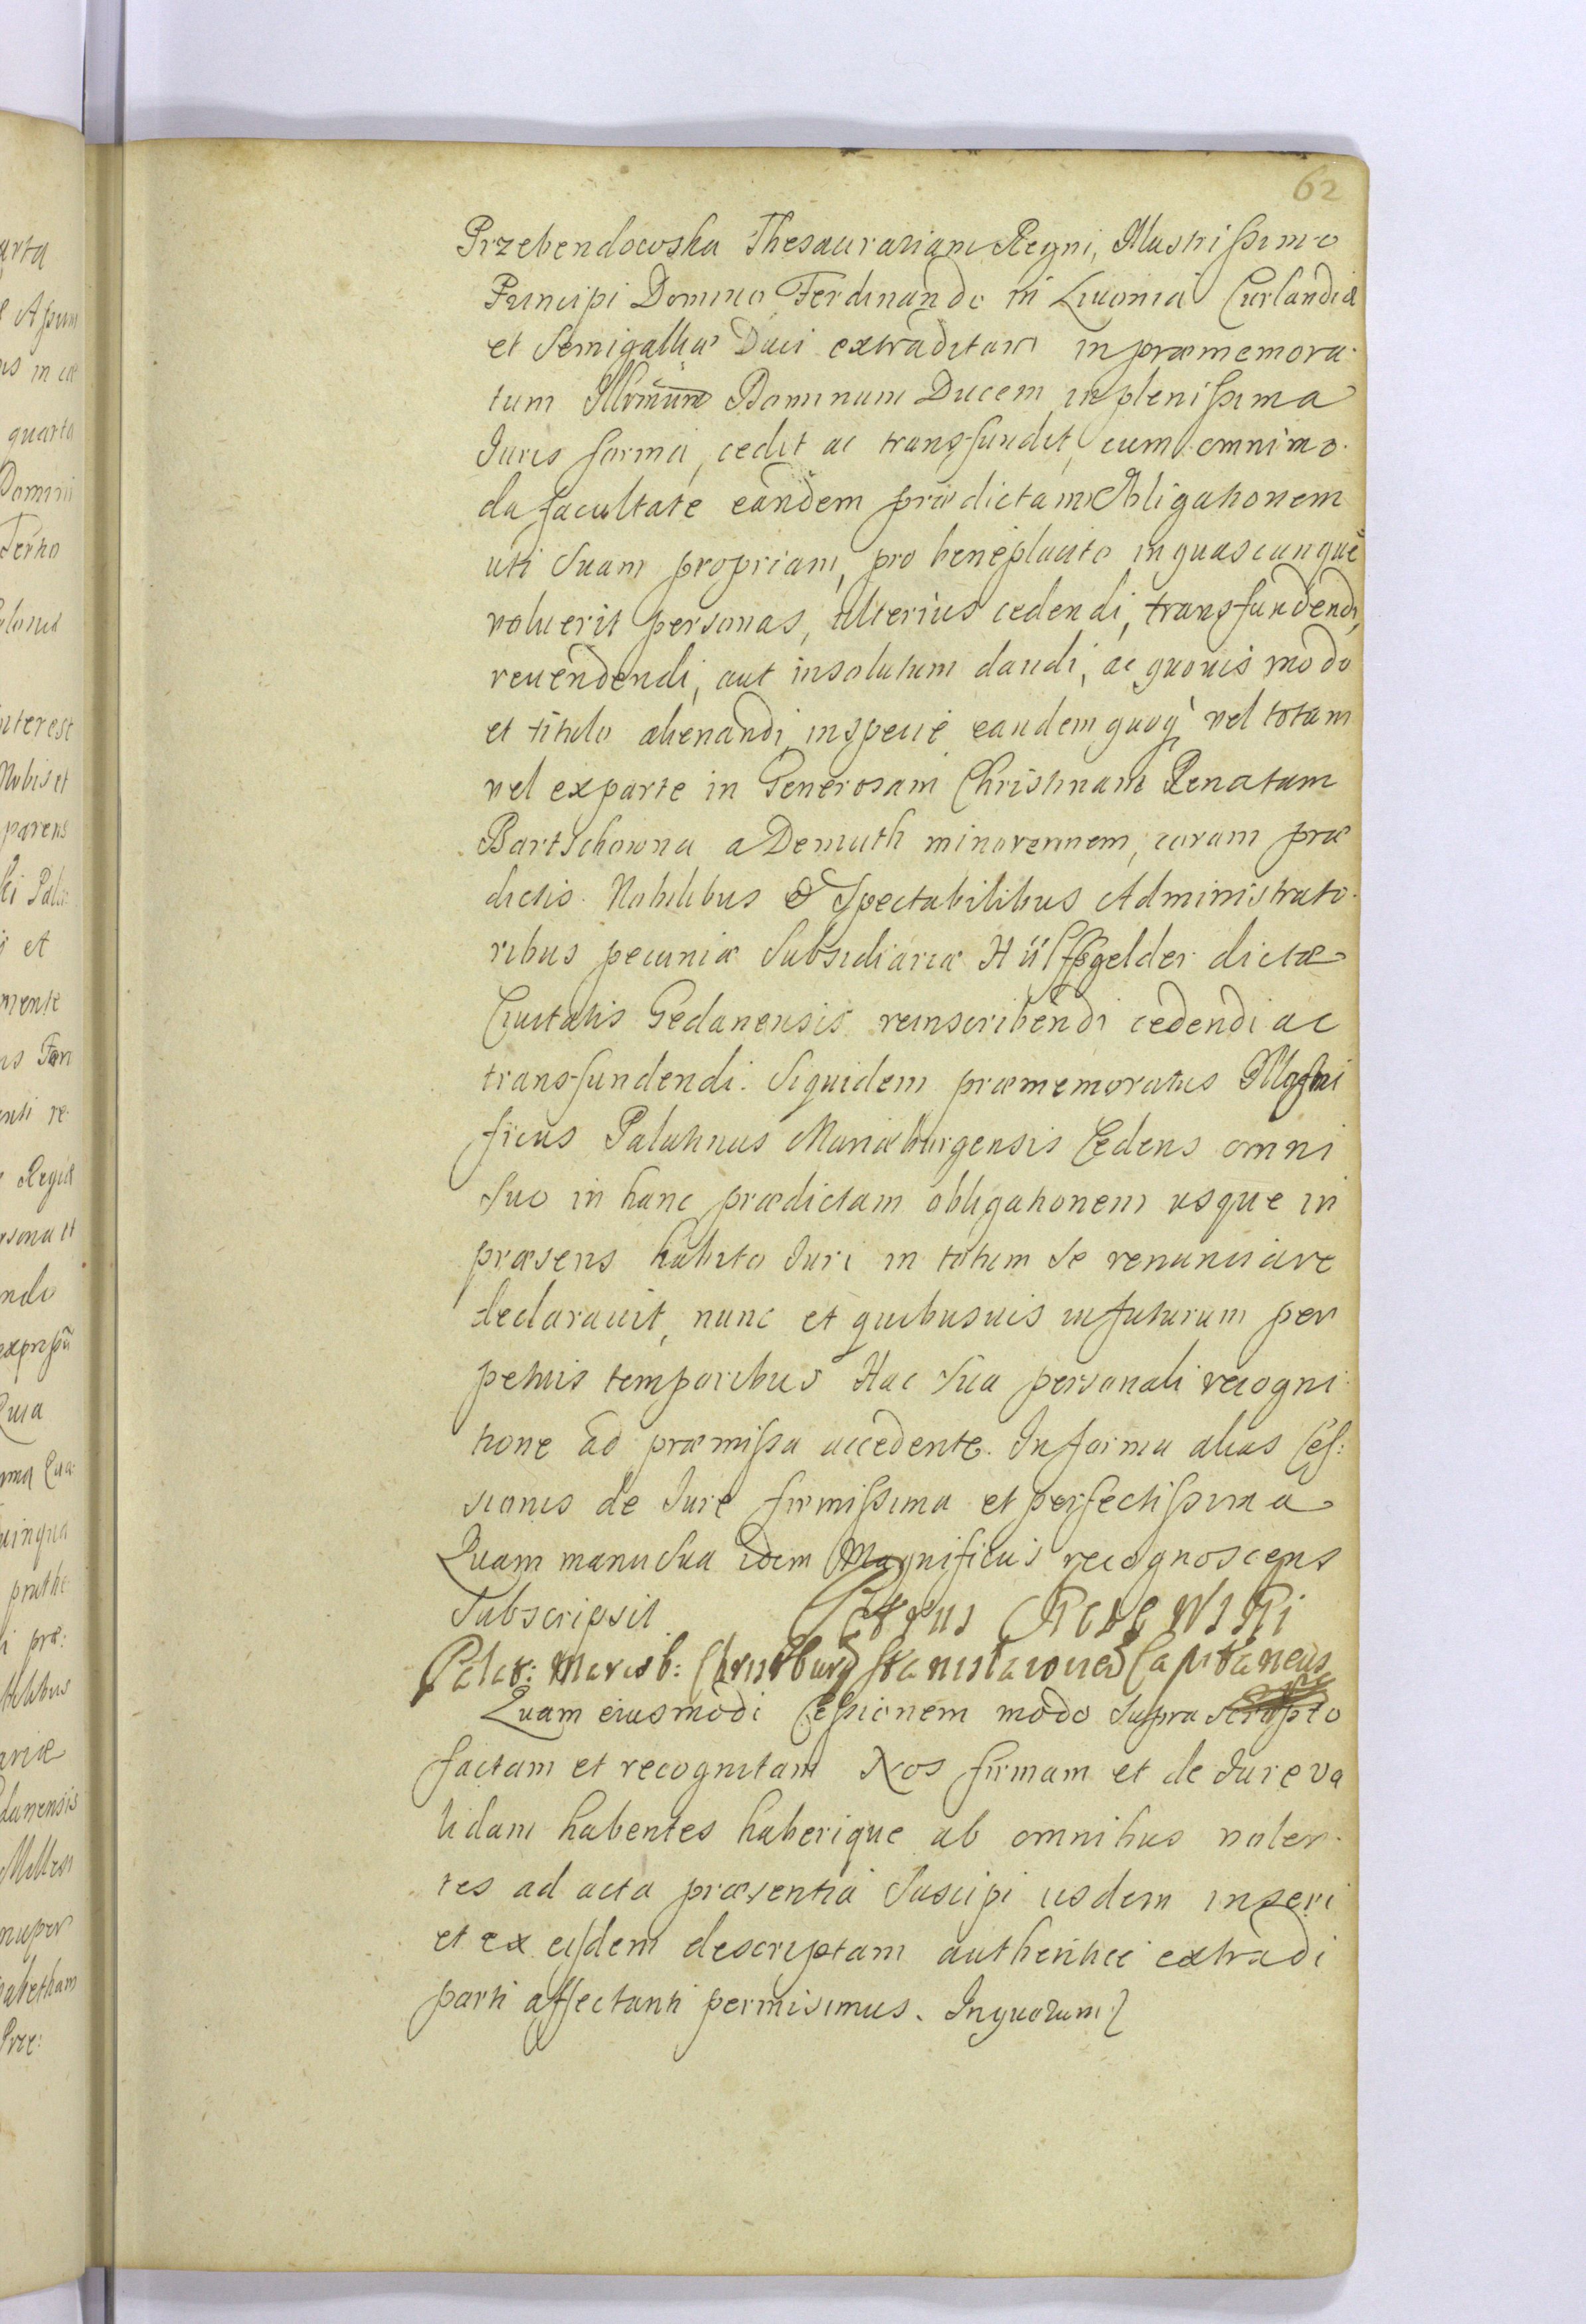 62
Przebendowska Thesaurariam Regni, Illustrissimo
Principi Domino Ferdinando in Livonia Curlandiæ
et Semigalliæ Duci extraditam in præmemora-
tum Illrmum Dominum Ducem, in plenissima
Juris forma, cedit ac transfundit, cum omnimo-
da facultate eandem prædictam Obligationem
uti Suam propriam, pro beneplacito in quascunque
voluerit personas, ulterius cedendi, transfundendi,
revendendi, aut insolutum dandi, ac quovis modo
et titulo alienandi, inspecie eandem quoq vel totam
vel exparte in Generosam Christinam Renatam
Bartschowna a Demuth minorennem, coram præ
dictis Nobilibus & Spectabilibus Administrato-
ribus pecuniæ Subsidiariæ Hülffsgelder dictæ
Civitatis Gedanensis reinscribendi cedendi ac
transfundendi. Siquidem præmemoratus Magni
ficus Palatinus Mariæburgensis Cedens omni
Suo in hanc prædictam obligationem usque in
præsens habito Juri in totum Se renunciare
declaravit, nunc et quibusvis infuturum per
petuis temporibus Hac Sua personali recogni-
tione ad præmissa accedente. In forma alias Ces:
sionis de Jure firmissima et perfectissima
Quam manu Sua idem Magnificus recognoscens
Subscripsit Petrus
Palat: Marieb: Christburg Capitaneus
Quam eiusmodi Cessionem modo Supra scripto
factam et recognitam Nos firmam et de Jure va
lidam habentes haberique ab omnibus volen-
tes ad acta præsentia Suscipi iisdem inseri
et ex eisdem descriptam authentice extradi
parti affectanti permisimus. Inquorum